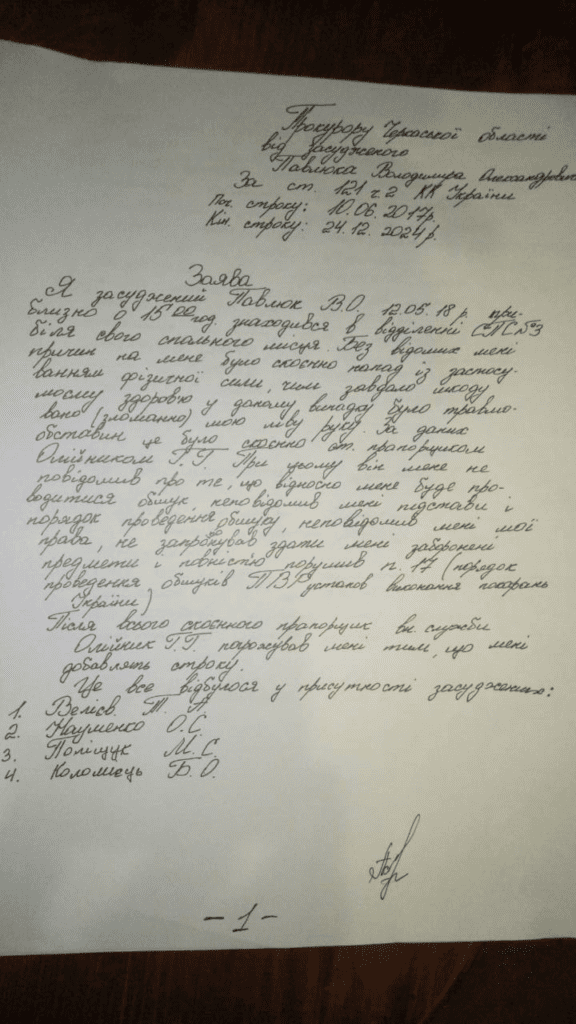 Прокурору Черкаської області
від засудженого
Павлюка Володимира Олександровича
За ст. 121 ч 2 КК України
Поч. строку: 10.06.2017р.
Кін. строку: 24.12.2024р.
Заява
Я засуджений Павлюк В.О. 12.05.18 р. при-
близно о 15 00 год. знаходився в відділенні СПС №3
біля свого спального місця. Без відомих мені
причин на мене було скоєно напад із застосу-
ванням фізичної сили, чим завдало шкоду
моєму здоров'ю у даному випадку було травмо-
вано (зломанно) мою ліву руку. За даних
обставин це було скоєно ст. прапорщиком
Олійником Г.Г. При цьому він мене не
повідомив про те, що відносно мене буде про-
водитися обшук неповідомив мені підстави і
порядок проведення обшуку, неповідомив мені мої
права, не запробував здати мені заборонені
предмети і повністю порушив п. 17 (порядок
проведення обшуків ПВР установ виконання покарань
України)
Після всього скоєнного прапорщик вн. служби
Олійник Г.Г. погрожував мені тим, що мені
добавлять строку.
Це все відбулося у присутності засуджених:
1. Велієв Т. А.
2. Науменко О.С.
3. Поліщук М.С.
4. Коломієць Б.О.
-1-